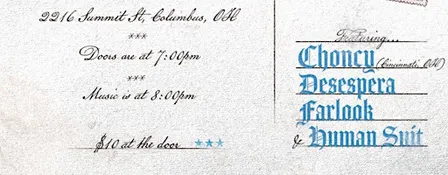 2216 Summit St, Columbus, OH
***
Doors are at 7:00pm
***
Music is at 8:00pm
$10 at the door ★★★
Featuring...
Choncy (Cincinnati, OH)
Desespera
Farlook
& Human Suit